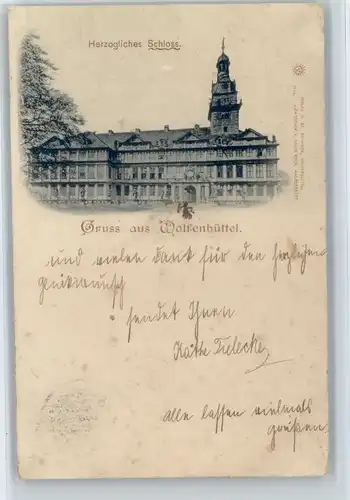 Herzogliches Schloss.
Gruss aus Wolfenbüttel.
und vielen Dank für den herzlichsten
Glückwunsch
sendet Ihnen
Käthe
Alle lassen vielmals
grüßen